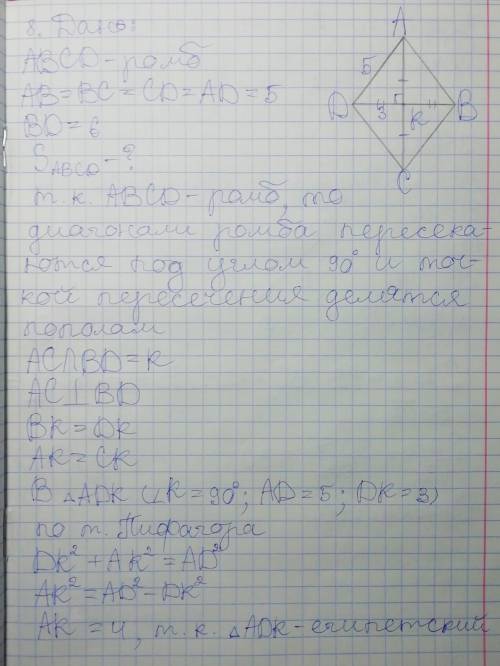 8. Дано:
ABCD-ромб
AB=BC=CD=AD=5
BD=6
S_ABCD-?
т.к. ABCD-ромб, то
диагонали ромба пересека-
ются под углом 90° и точ-
кой пересечения делятся
пополам
AC∩BD=K
AC⊥BD
BK=DK
AK=CK
В △ADK (∠K=90°; AD=5; DK=3)
по т. Пифагора
DK²+AK²=AD²
AK²=AD²-DK²
AK=4, т.к. △ADK-египетский
A
5
D
3
K
B
C